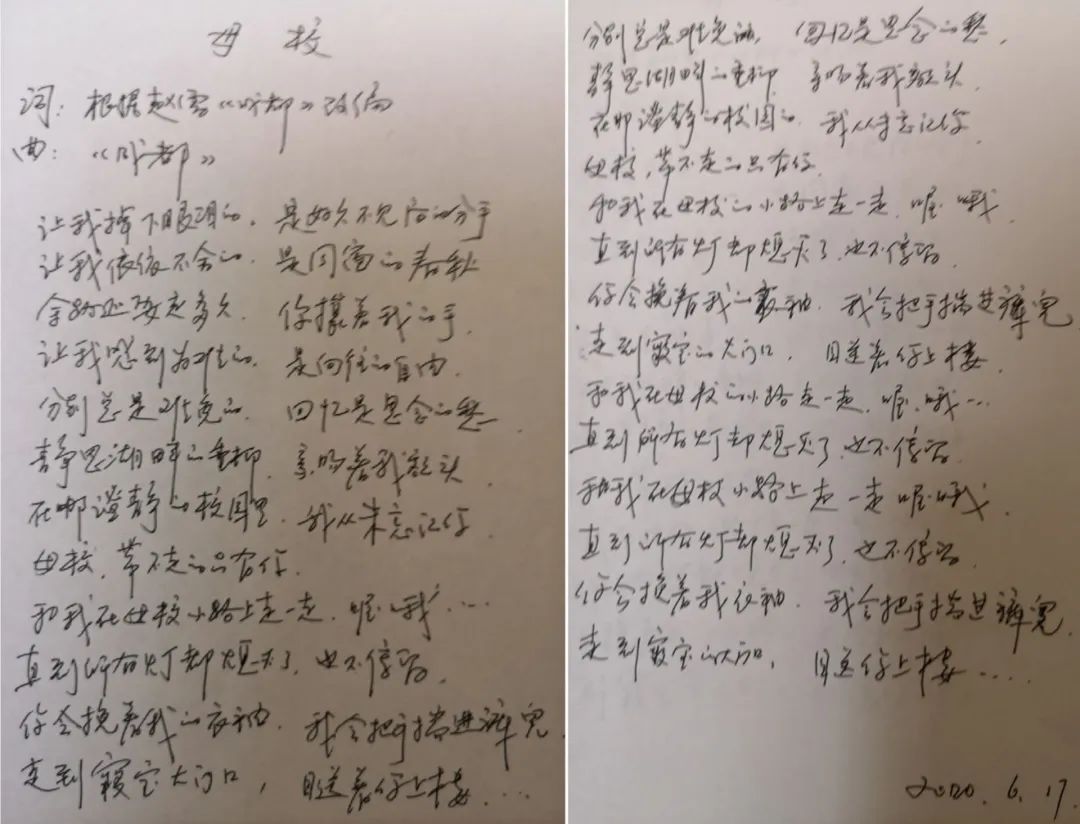 母校
词：根据赵雷《成都》改编
曲：《成都》
让我掉下眼泪的，是好久不见后的分手
让我依依不舍的，是同窗的春秋
余路还要走多久，你攥着我的手
让我感到为难的，是向往的自由
分别总是难免的，回忆是思念的愁
静思湖畔的垂柳，亲吻着我额头
在那澄静的校园里，我从未忘记你
母校，带不走的只有你
和我在母校小路上走一走，喔 哦……
直到所有灯都熄灭了，也不停留
你会挽着我的衣袖，我会把手揣进裤兜
走到寝室大门口，目送着你上楼……
分别总是难免的，回忆是思念的愁，
静思湖畔的垂柳，亲吻着我额头
在那澄静的校园的，我从未忘记你
母校，带不走的只有你
和我在母校的小路上走一走，喔 哦
直到所有灯都熄灭了，也不停留
你会挽着我的衣袖，我会把手揣进裤兜
走到寝室的大门口，目送着你上楼
和我在母校的小路走一走，喔，哦……
直到所有灯都熄灭了，也不停留
和我在母校小路上走一走 喔 哦
直到所有灯都熄灭了，也不停留
你会挽着我衣袖，我会把手揣进裤兜
走到寝室的大门口，目送你上楼……
2020.6.17